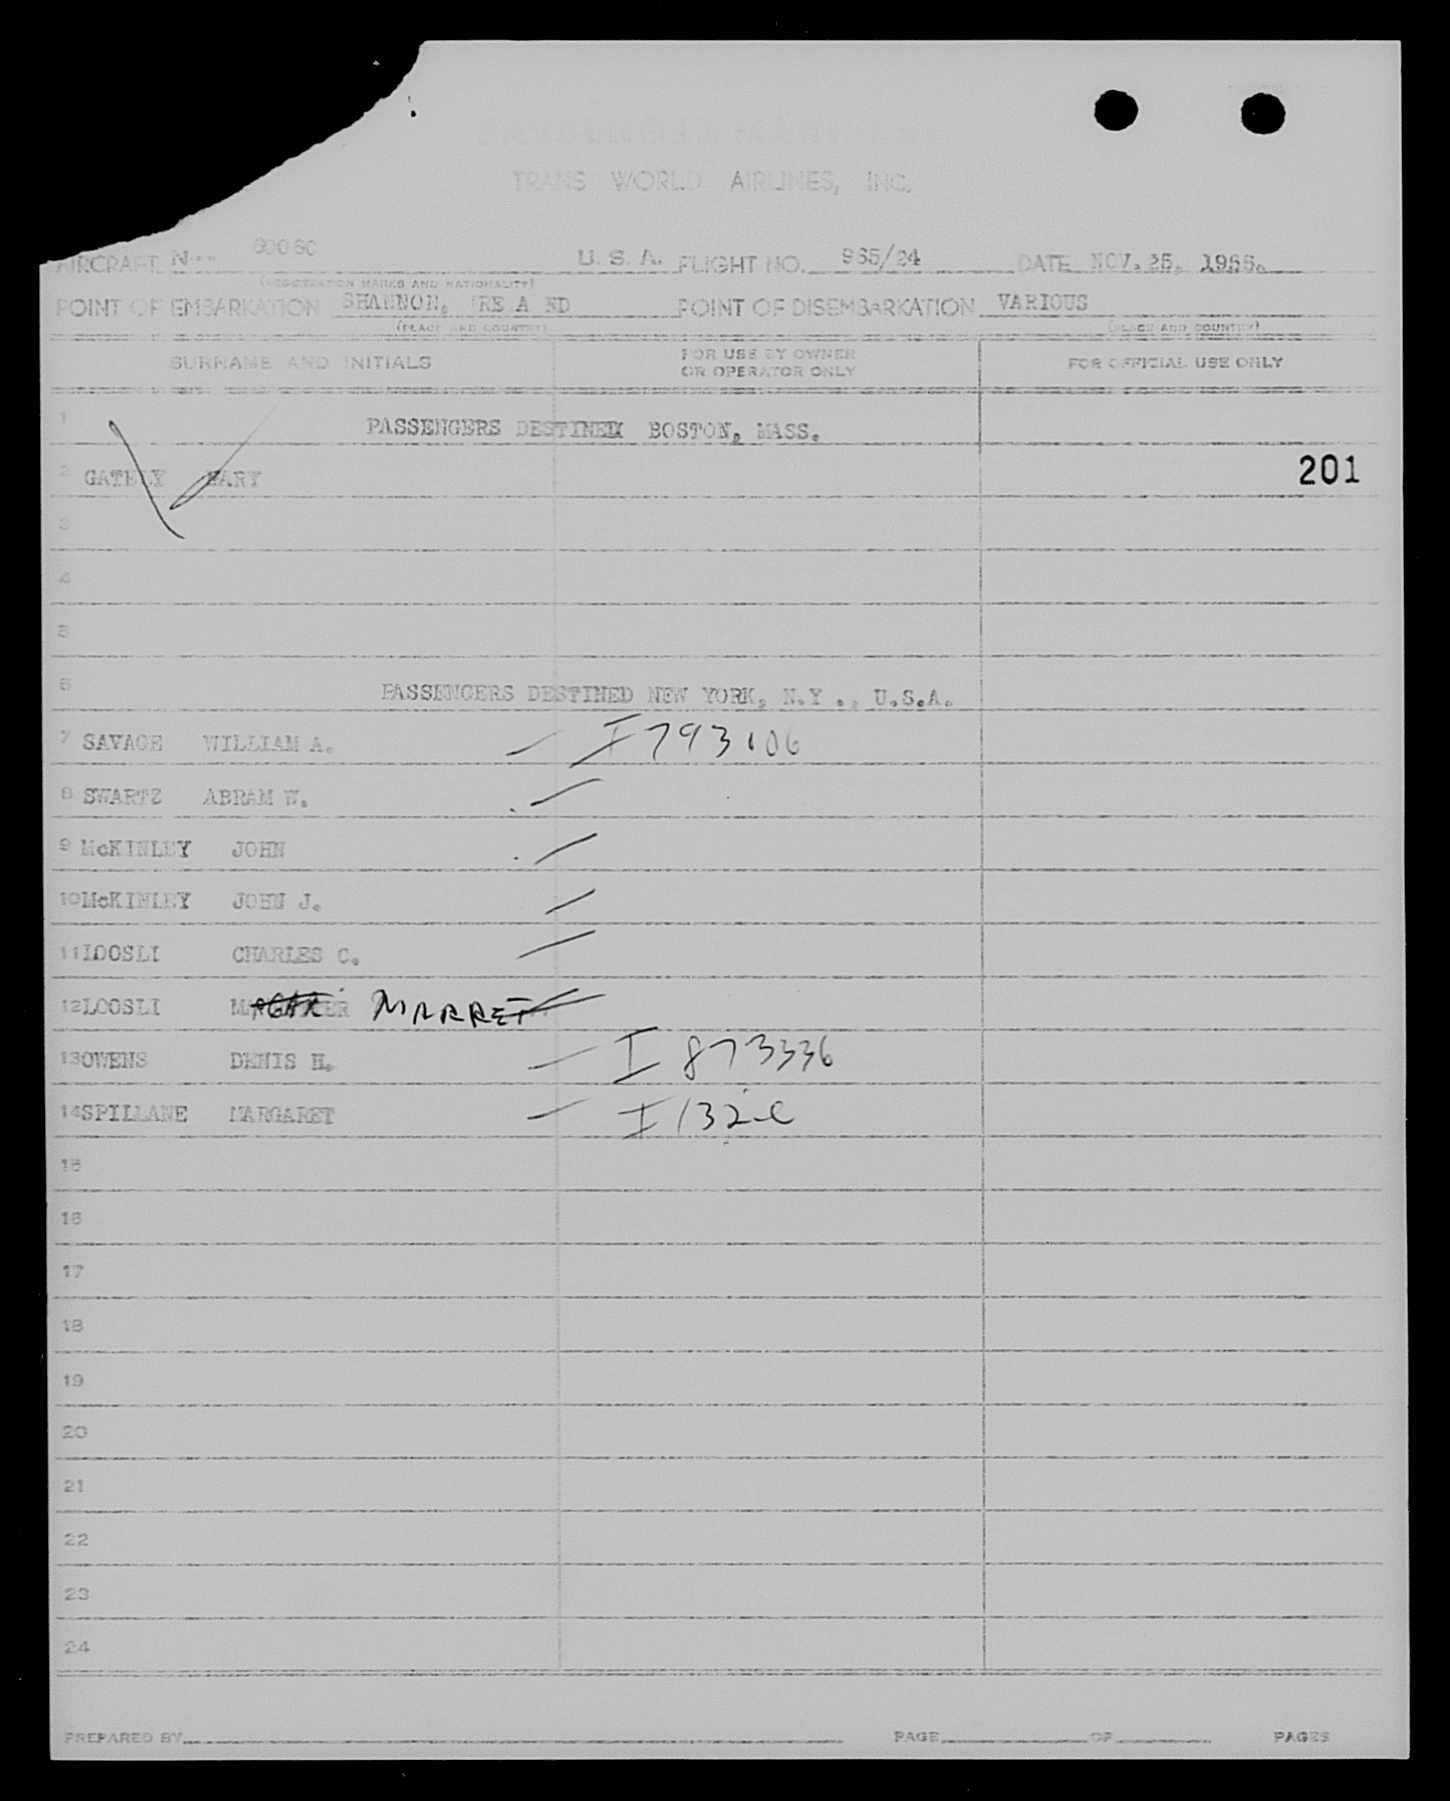 PASSENGER MANIFEST
TRANS WORLD AIRLINES, INC.
AIRCRAFT U. S. A. FLIGHT NO. 965/24 DATE NOV. 25, 1955.
(REGISTRATION MARKS AND NATIONALITY)
POINT OF EMBARKATION SHANNON, IRE A ND POINT OF DISEMBARKATION VARIOUS
(PLACE AND COUNTRY) (PLACE AND COUNTRY)
SURNAME AND INITIALS FOR USE BY OWNER OR OPERATOR ONLY FOR OFFICIAL USE ONLY
1 PASSENGERS DESTINED BOSTON, MASS.
2 GATELY MARY 201
3
4
5
6 PASSENGERS DESTINED NEW YORK, N.Y ., U.S.A.
7 SAVAGE WILLIAM A. I 793106
8 SWARTZ ABRAM W.
9 McKINLEY JOHN
10 McKINLEY JOHN J.
11 LOOSLI CHARLES C.
12 LOOSLI MARRET
13 OWENS DENIS H. I 873336
14 SPILLANE MARGARET I
15
16
17
18
19
20
21
22
23
24
PREPARED BY PAGE OF PAGES